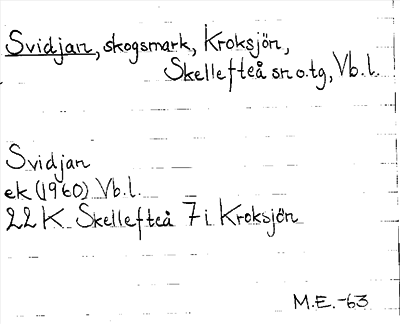 Svidjan, skogsmark, Kroksjön,
Skellefteå sn o. tg, Vb. l.
Svidjan
ek (1960) Vb. l.
22 K Skellefteå 7 i Kroksjön
M.E. -63